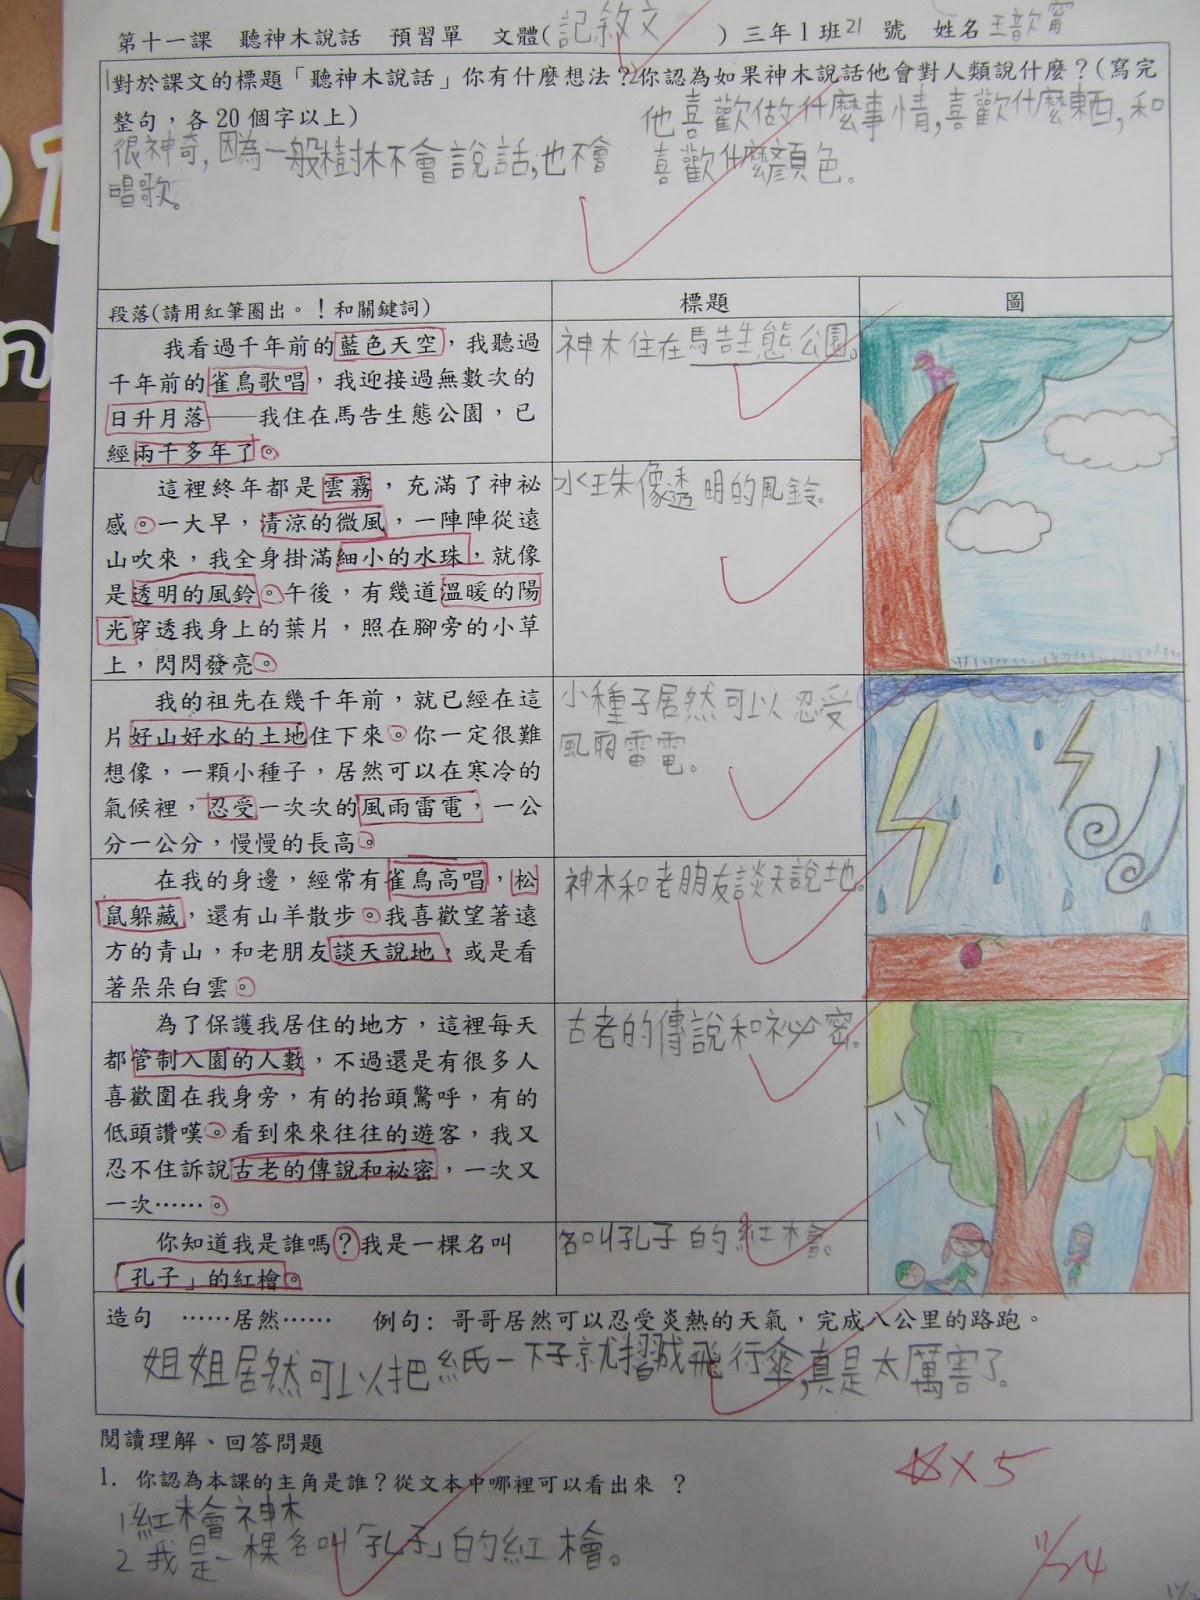 第十一課 聽神木說話 預習單 文體(記敘文)三年1班21號 姓名王歆甯
1對於課文的標題「聽神木說話」你有什麼想法？2你認為如果神木說話他會對人類說什麼？(寫完
整句，各20個字以上)
很神奇,因為一般樹木不會說話,也不會
唱歌。
他喜歡做什麼事情,喜歡什麼東西,和
喜歡什麼顏色。
段落(請用紅筆圈出。！和關鍵詞) 標題 圖
我看過千年前的藍色天空，我聽過
千年前的雀鳥歌唱，我迎接過無數次的
日升月落——我住在馬告生態公園，已
經兩千多年了。
神木住在馬告生態公園。
這裡終年都是雲霧，充滿了神祕
感。一大早，清涼的微風，一陣陣從遠
山吹來，我全身掛滿細小的水珠，就像
是透明的風鈴。午後，有幾道溫暖的陽
光穿透我身上的葉片，照在腳旁的小草
上，閃閃發亮。
水珠像透明的風鈴。
我的祖先在幾千年前，就已經在這
片好山好水的土地住下來。你一定很難
想像，一顆小種子，居然可以在寒冷的
氣候裡，忍受一次次的風雨雷電，一公
分一公分，慢慢的長高。
小種子居然可以忍受
風雨雷電。
在我的身邊，經常有雀鳥高唱，松
鼠躲藏，還有山羊散步。我喜歡望著遠
方的青山，和老朋友談天說地，或是看
著朵朵白雲。
神木和老朋友談天說地。
為了保護我居住的地方，這裡每天
都管制入園的人數，不過還是有很多人
喜歡圍在我身旁，有的抬頭驚呼，有的
低頭讚嘆。看到來來往往的遊客，我又
忍不住訴說古老的傳說和祕密，一次又
一次……。
古老的傳說和祕密。
你知道我是誰嗎？我是一棵名叫
「孔子」的紅檜。
名叫孔子的紅檜。
造句 ……居然…… 例句：哥哥居然可以忍受炎熱的天氣，完成八公里的路跑。
姐姐居然可以把紙一下子就摺成飛行傘,真是太厲害了。
閱讀理解、回答問題
1. 你認為本課的主角是誰？從文本中哪裡可以看出來 ？
1紅檜神木
2我是一棵名叫「孔子」的紅檜。
×5
11/24